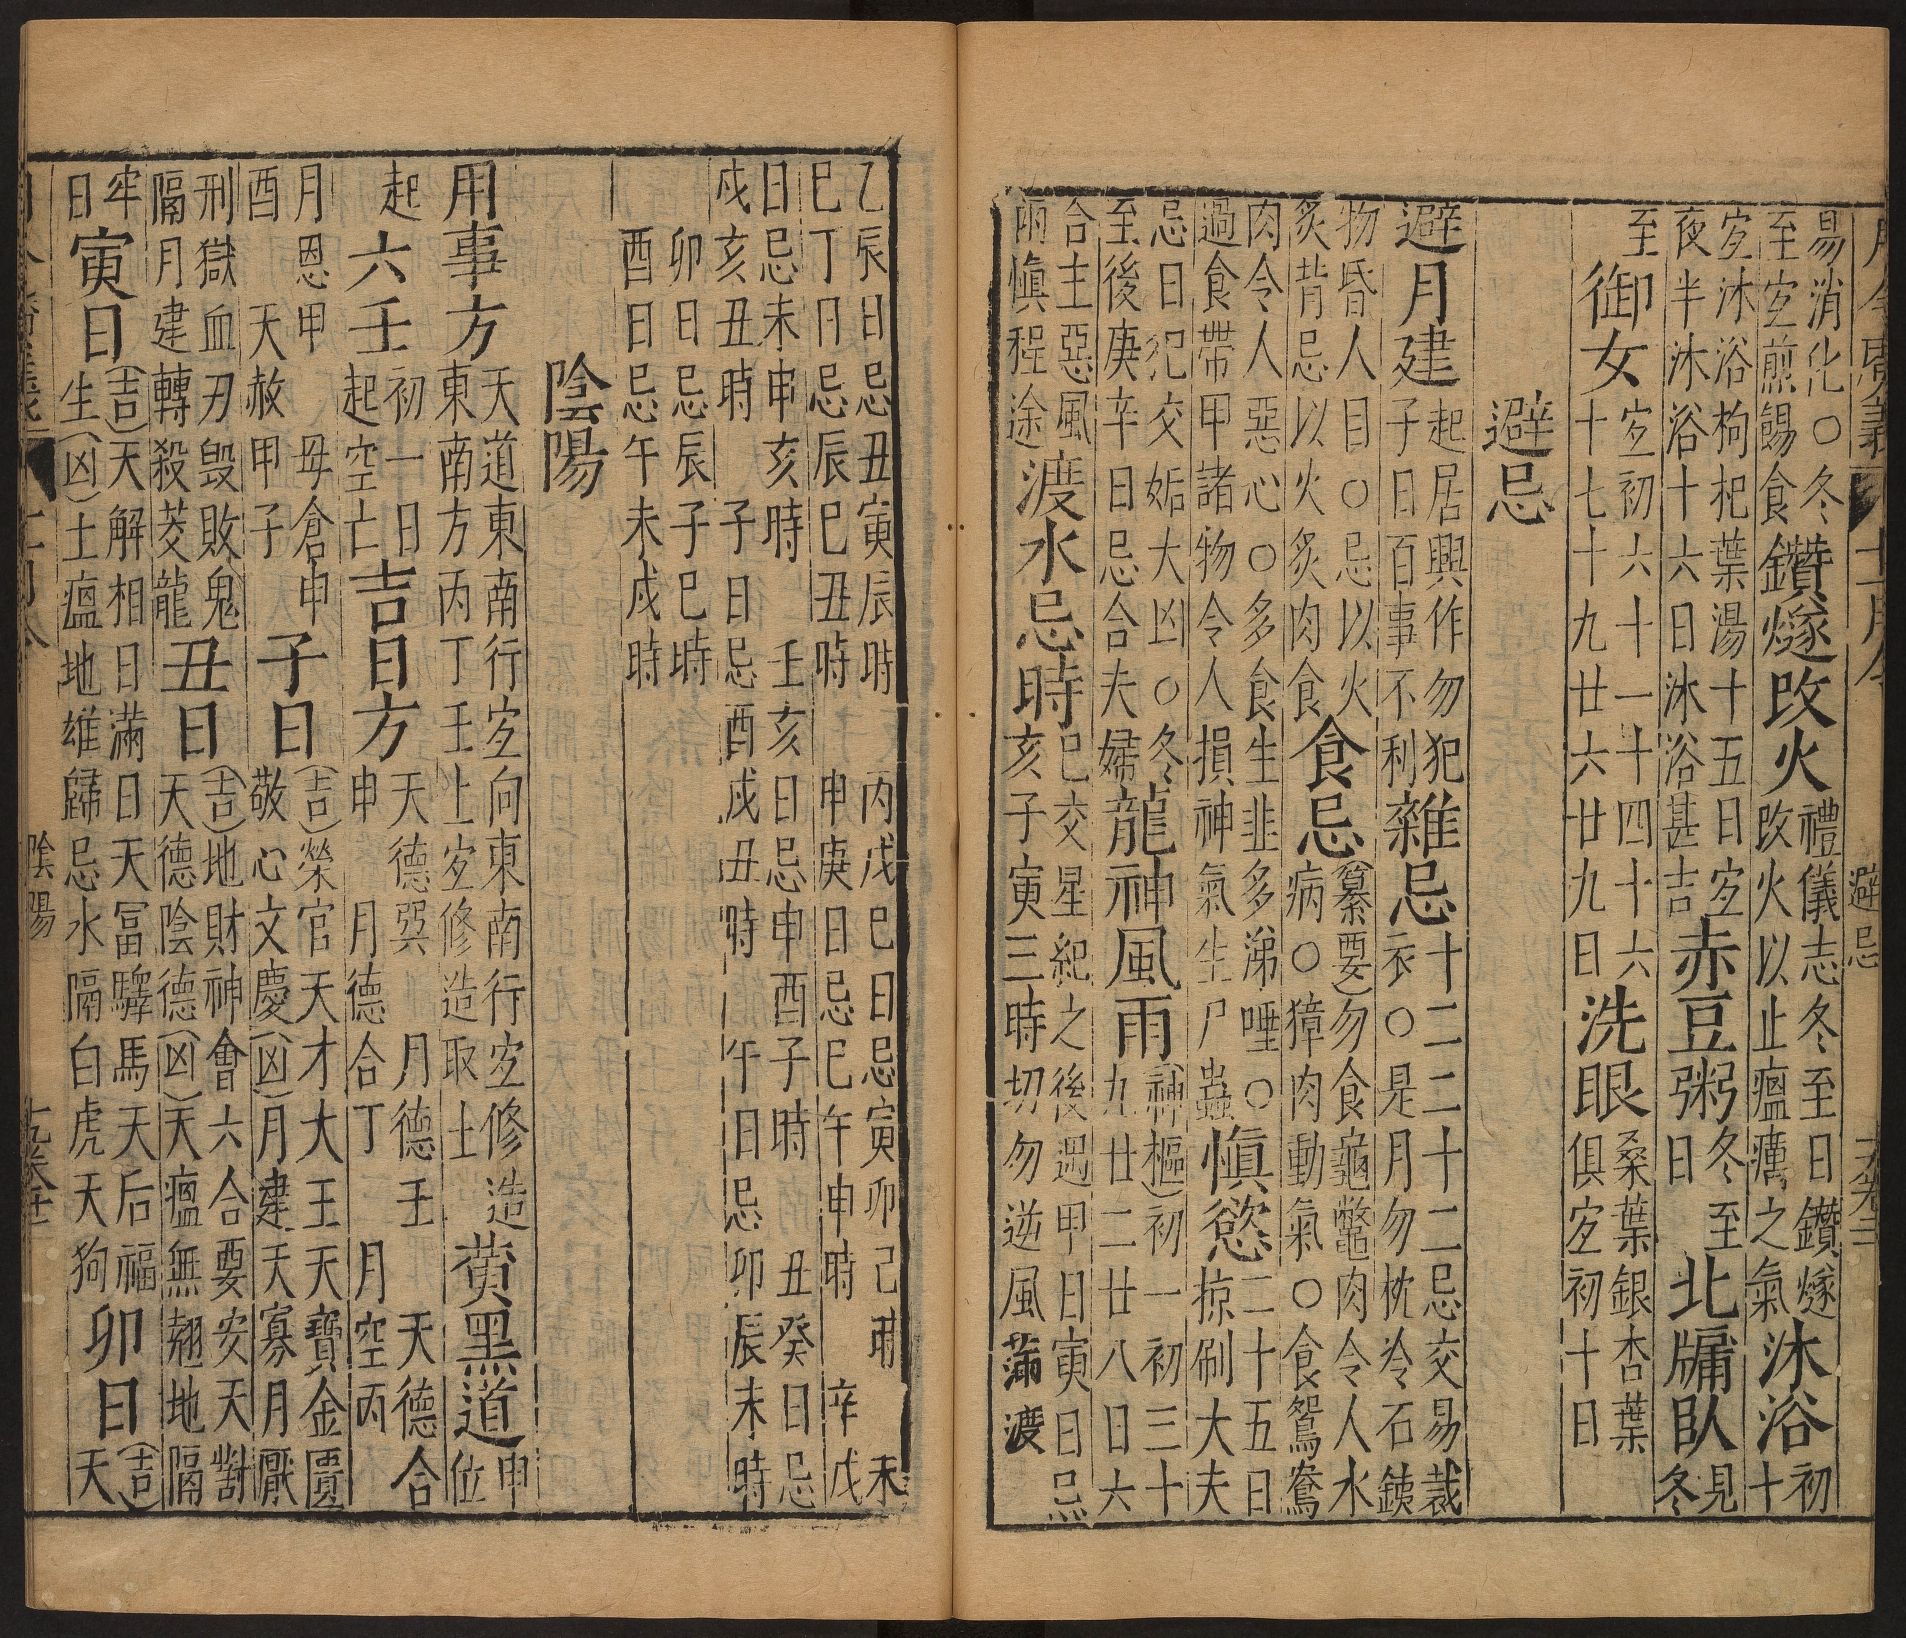 月令廣義 十一月令 避忌
易消化○冬
至宐煎餳食
鑽燧改火
禮儀志冬至日鑽燧
改火以止瘟癘之氣
沐浴
初
十
宐沐浴枸杞葉湯十五日宐
夜半沐浴十六日沐浴甚吉
赤豆粥
冬至
日
北牖臥
見
冬
至
御女
宐初六十一十四十六
十七十九廿六廿九日
洗眼
桑葉銀杏葉
俱宐初十日
避忌
避月建
起居興作勿犯
子日百事不利
雜忌
十二二十二忌交易裁
衣○是月勿枕冷石鐵
物昏人目○忌以火
炙背忌以火炙肉食
食忌
(纂要)勿食龜鼈肉令人水
病○獐肉動氣○食鴛鴦
肉令人惡心○多食生韭多涕唾○
過食帶甲諸物令人損神氣生尸蟲
慎慾
二十五日
掠刷大夫
忌日犯交姤大凶○冬
至後庚辛日忌合夫婦
龍神風雨
(神樞)初一初三十
九廿二廿八日六
合主惡風
雨慎程途
渡水忌時
巳交星紀之後遇甲日寅日忌
亥子寅三時切勿逆風蒲渡
乙辰日忌丑寅辰時 丙戊巳日忌寅卯己時 未
巳丁日忌辰巳丑時 申庚日忌巳午申時 辛戊
日忌未申亥時 壬亥日忌申酉子時 丑癸日忌
戍亥丑時 子日忌酉戍丑時 午日忌卯辰未時
卯日忌辰子巳時
酉日忌午未戍時
陰陽
用事方
天道東南行宐向東南行宐修造
東南方丙丁壬上宐修造取土
黄黑道
申
位
起六壬
初一日
起空亡
吉日方
天德巽 月德壬 天德合
申 月德合丁 月空丙
月恩甲 毋倉申
酉 天赦甲子
子日
(吉)榮官天才大王天寶金匱
敬心文慶(凶)月建天寡月厭
刑獄血刃毀敗鬼
隔月建轉殺菱龍
丑日
(吉)地財神會六合要安天對
天德陰德(凶)天瘟無翹地隔
牢
日
寅日
(吉)天解相日滿日天冨驛馬天后福
生(凶)土瘟地雄歸忌水隔白虎天狗
卯日
(吉)
天
陰陽